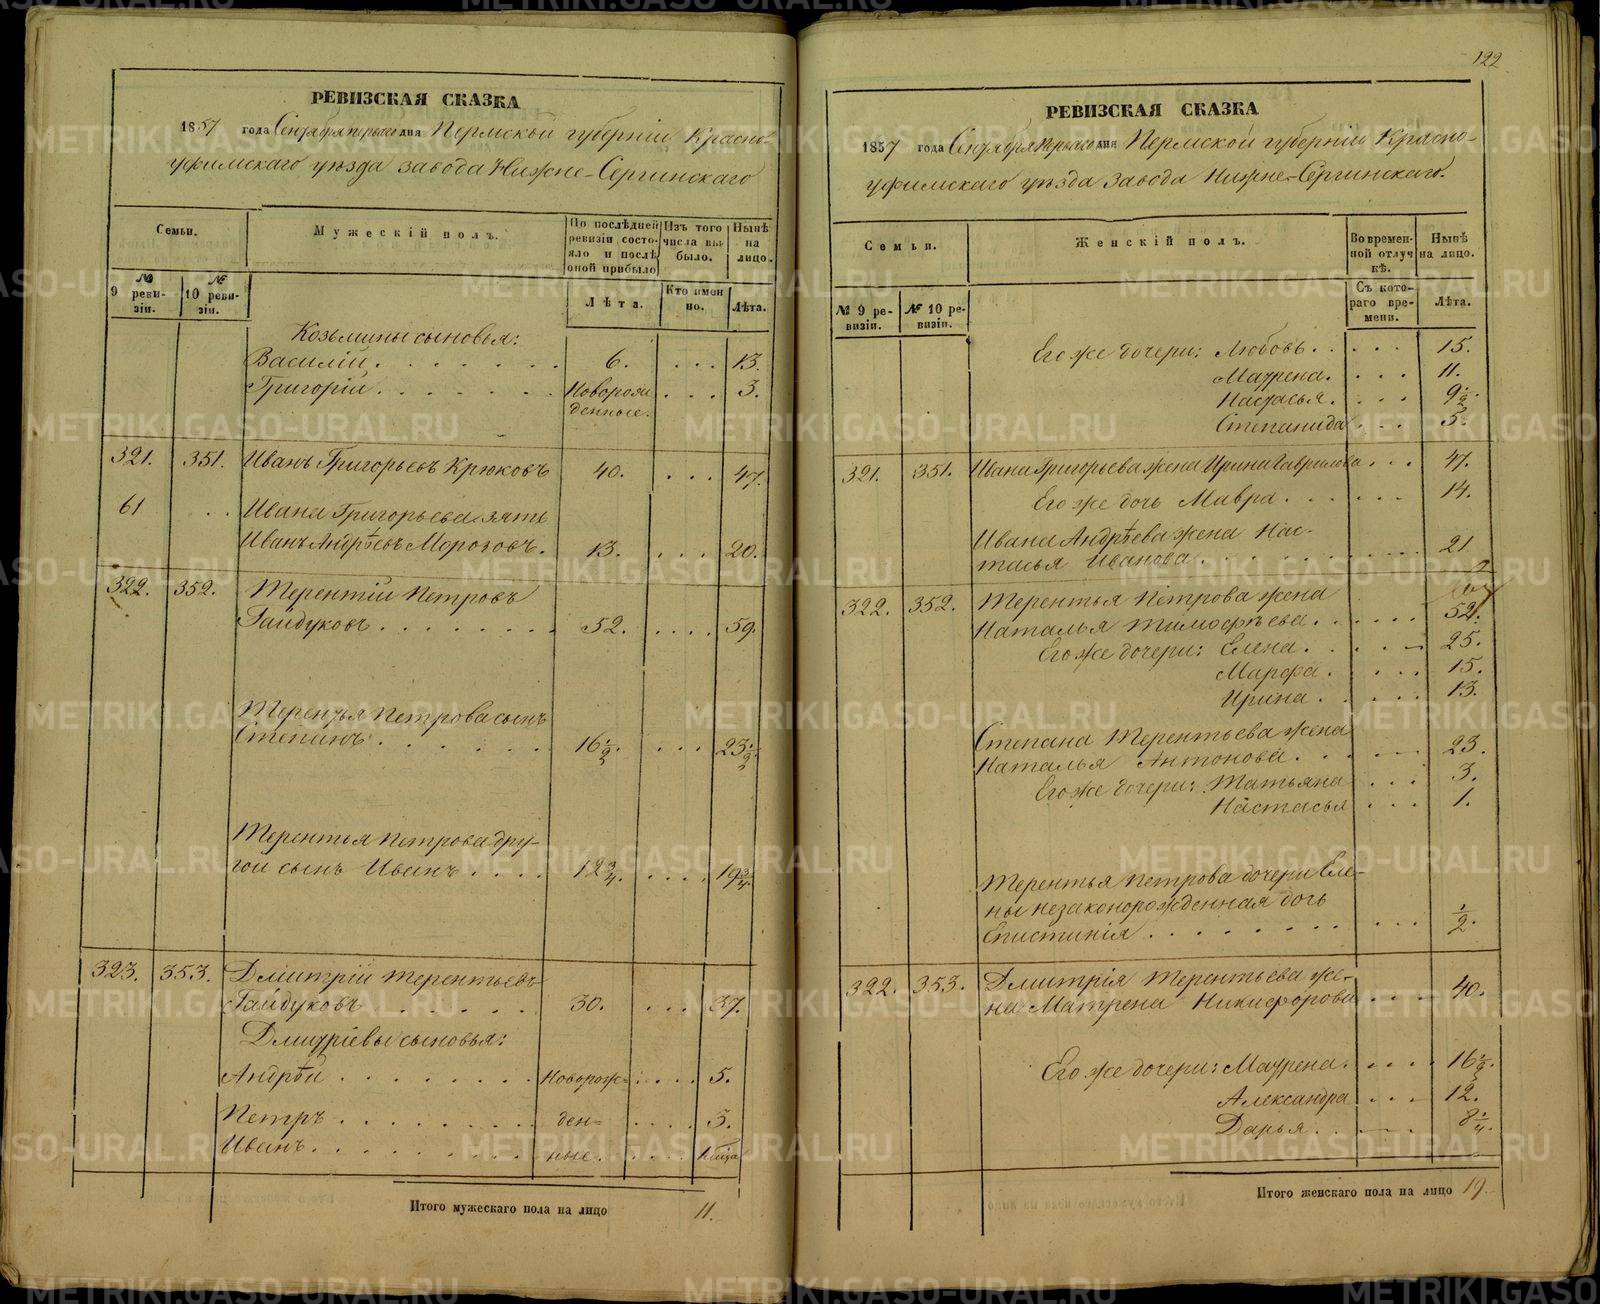 РЕВИЗСКАЯ СКАЗКА
1857 года Сентября перваго дня Пермской губерніи Красно-
уфимскаго уѣзда завода Нижне-Сергинскаго
Семьи.
Мужескій полъ.
По послѣдней ревизіи состояло и послѣ оной прибыло
Изъ того числа выбыло.
Нынѣ на лицо.
№ 9 ревизіи.
№ 10 ревизіи.
Лѣта.
Кто именно.
Лѣта.
Козьмины сыновья:
Василій . . . . . . 6. . . . 13.
Григорій . . . . . . Новорож . . . 3.
денные.
321. 351. Иванъ Григорьевъ Крюковъ 40. . . . 47.
61 . . Ивана Григорьева зять
Иванъ Андрѣевъ Морозовъ. 13. . . . 20.
322. 352. Терентій Петровъ
Гайдуковъ . . . . . . 52. . . . . 59.
Терентья Петрова сынъ
Степанъ . . . . . . 16 1/2. . . . 23 1/2
Терентья Петрова дру-
гой сынъ Иванъ . . . . 12 3/4. . . . . 19 3/4.
323. 353. Дмитрій Терентьевъ
Гайдуковъ . . . . . 30. . . . 37.
Дмитріевы сыновья:
Андрѣй . . . . . . . Новорож= . . . . 5.
Петръ . . . . . . . . ден= . . . . 3.
Иванъ . . . . . . . . ные. . . . .
Итого мужескаго пола на лицо 11.
122
РЕВИЗСКАЯ СКАЗКА
1857 года Сентября перваго дня Пермской губерніи Красно-
уфимскаго уѣзда завода Нижне-Сергинскаго.
Семьи.
Женскій полъ.
Во временной отлучкѣ.
Нынѣ на лицо.
№ 9 ревизіи.
№ 10 ревизіи.
Съ котораго времени.
Лѣта.
Его же дочери: Любовь . . . . . 15.
Матрена. . . . 11.
Настасья. . . . 9 1/2.
Степанида . . . 5.
321. 351. Ивана Григорьева жена Ирина Гаврилова . . . 47.
Его же дочь Мавра . . . . . . 14.
Ивана Андрѣева жена Нас-
тасья Иванова . . . . . . . . . 21
322. 352. Терентья Петрова жена
Наталья Тимофѣева . . . . . . 52.
Его же дочери: Елена . . . . . 25.
Марфа . . . . . 15.
Ирина . . . . . 13.
Степана Терентьева жена
Наталья Антонова . . . . . 23.
Его же дочери: Татьяна . . . 3.
Настасья . . . 1.
Терентья Петрова дочери Еле-
ны незаконорожденная дочь
Епистинія . . . . . . . . . . 1/2.
322. 353. Дмитрія Терентьева же-
на Матрена Никифорова . . . . 40.
Его же дочери: Матрена . . . . . 16 1/2.
Александра . . . 12.
Дарья . . . . . 8 1/4.
Итого женскаго пола на лицо 19.
METRIKI.GASO-URAL.RU